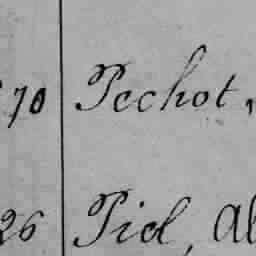 70 Pechot,
26 Piel, Al